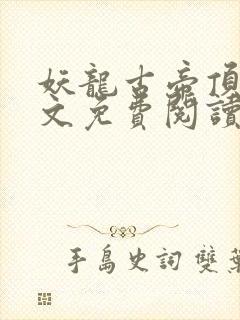 妖龍古帝頂
文免費閱讀
手島史詞 雙葉